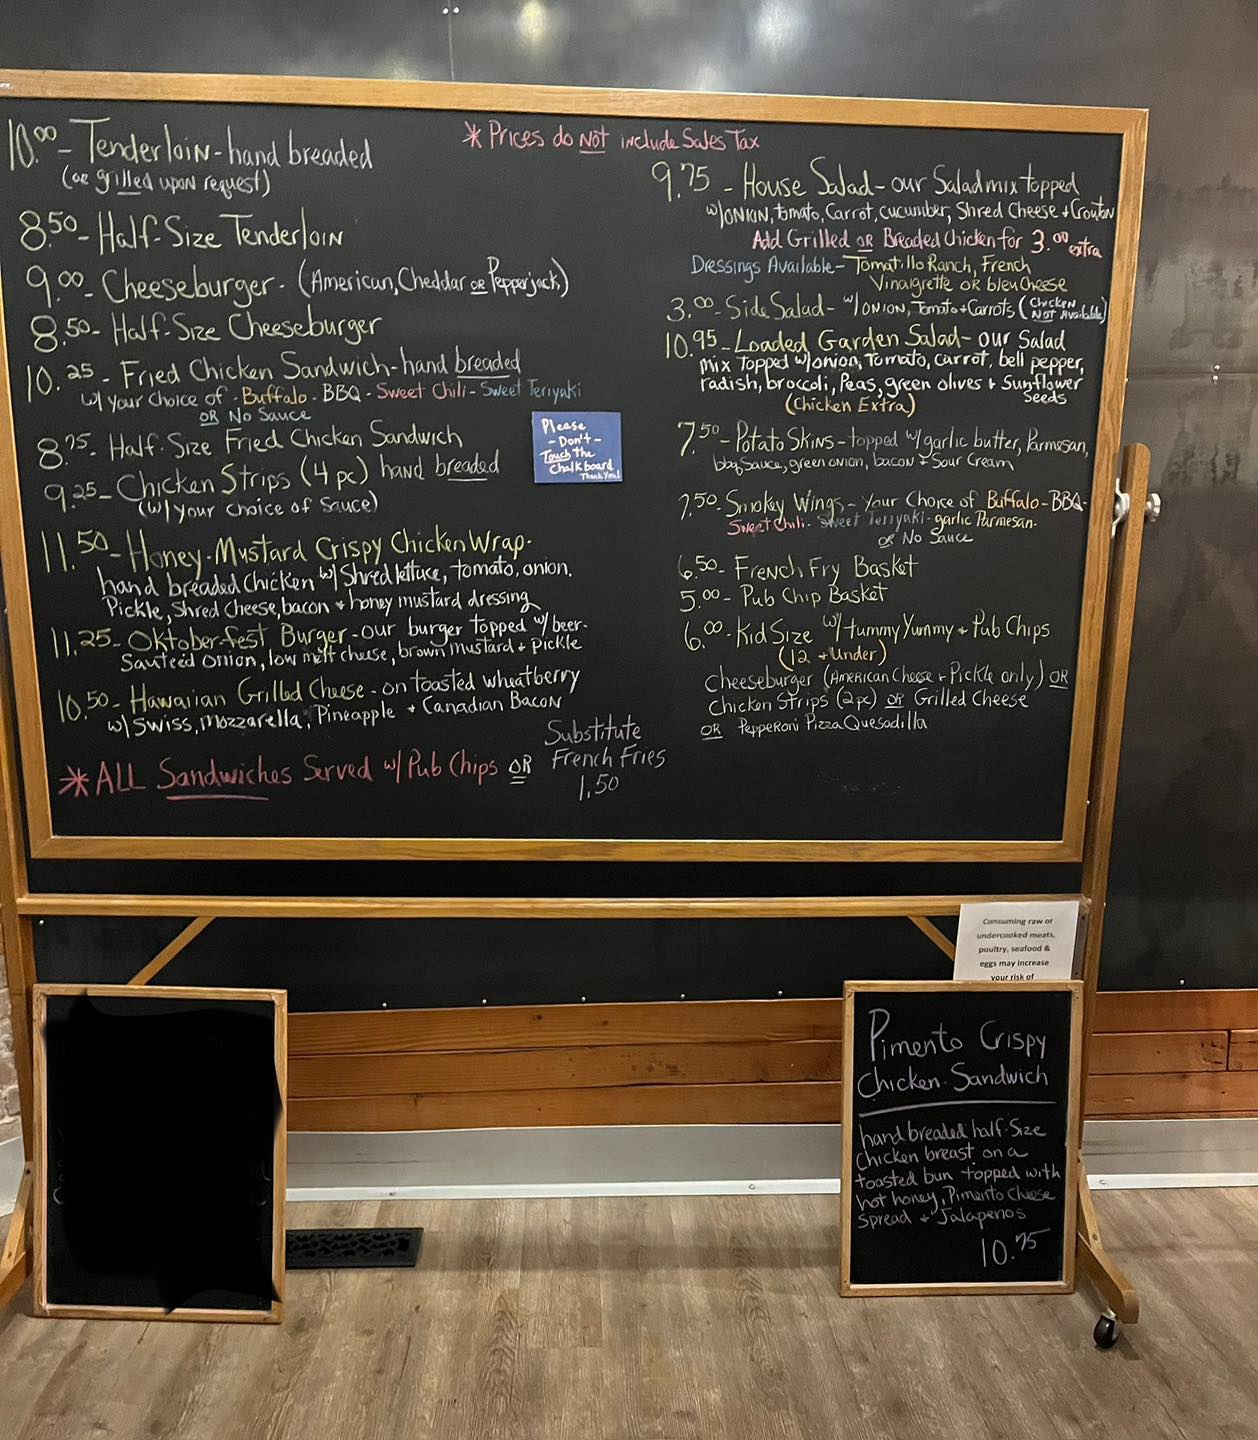 * Prices do NOT include Sales Tax
10.00 - Tenderloin - hand breaded
(or grilled upon request)
8.50 - Half-Size Tenderloin
9.00 - Cheeseburger - (American, Cheddar or Pepperjack)
8.50 - Half-Size Cheeseburger
10.25 - Fried Chicken Sandwich - hand breaded
w/ your choice of - Buffalo - BBQ - Sweet Chili - Sweet Teriyaki
OR No Sauce
8.75 - Half-Size Fried Chicken Sandwich
9.25 - Chicken Strips (4 pc) hand breaded
(w/ your choice of Sauce)
11.50 - Honey-Mustard Crispy Chicken Wrap -
hand breaded Chicken w/ Shred lettuce, tomato, onion,
Pickle, Shred cheese, bacon + honey mustard dressing
11.25 - Oktober-fest Burger - our burger topped w/ beer-
Sauteed onion, low melt cheese, brown mustard + Pickle
10.50 - Hawaiian Grilled Cheese - on toasted wheatberry
w/ Swiss, Mozzarella, Pineapple + Canadian Bacon
* ALL Sandwiches Served w/ Pub Chips OR
Substitute
French Fries
1.50
Please
- Don't -
Touch the
Chalkboard
Thank You!
9.75 - House Salad - our Salad mix topped
w/ ONION, tomato, Carrot, cucumber, Shred Cheese + Crouton
Add Grilled OR Breaded Chicken for 3.00 extra
Dressings Available - Tomatillo Ranch, French
Vinaigrette OR bleu Cheese
3.00 - Side Salad - w/ ONION, Tomato + Carrots (Chicken
NOT Available)
10.95 - Loaded Garden Salad - our Salad
mix topped w/ onion, tomato, carrot, bell pepper,
radish, broccoli, Peas, green olives + Sunflower
Seeds
(Chicken Extra)
7.50 - Potato Skins - topped w/ garlic butter, Parmesan,
bbq Sauce, green onion, bacon + Sour Cream
7.50 - Smokey Wings - Your Choice of Buffalo - BBQ -
Sweet Chili - Sweet Teriyaki - garlic Parmesan -
or No Sauce
6.50 - French Fry Basket
5.00 - Pub Chip Basket
6.00 - Kid Size w/ tummy Yummy + Pub Chips
(12 + Under)
Cheeseburger (American Cheese + Pickle only) OR
Chicken Strips (2pc) OR Grilled Cheese
OR Pepperoni Pizza Quesadilla
Consuming raw or
undercooked meats,
poultry, seafood &
eggs may increase
your risk of
Pimento Crispy
Chicken Sandwich
hand breaded half-Size
Chicken breast on a
toasted bun topped with
hot honey, Pimento Cheese
Spread + Jalapenos
10.75